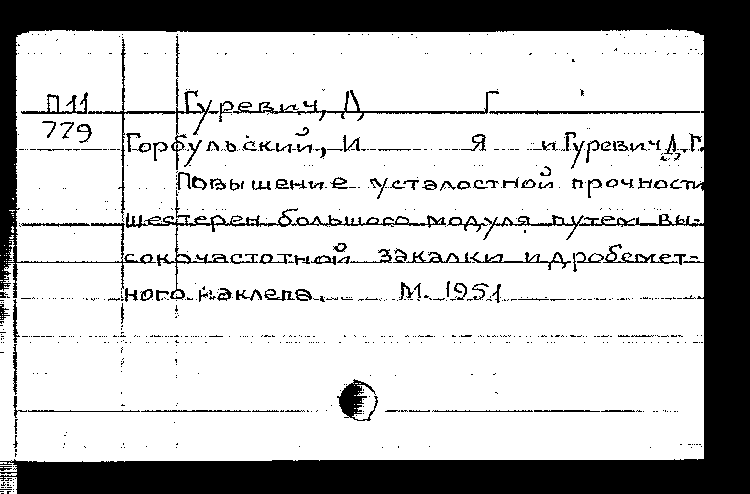 П11 Гуревич, Д Г
779 Горбульский, И Я и Гуревич Д.Г.
Повышение усталостной прочности
шестерен большого модуля путем вы-
сокочастотной закалки и дробемет-
ного наклепа. М. 1951